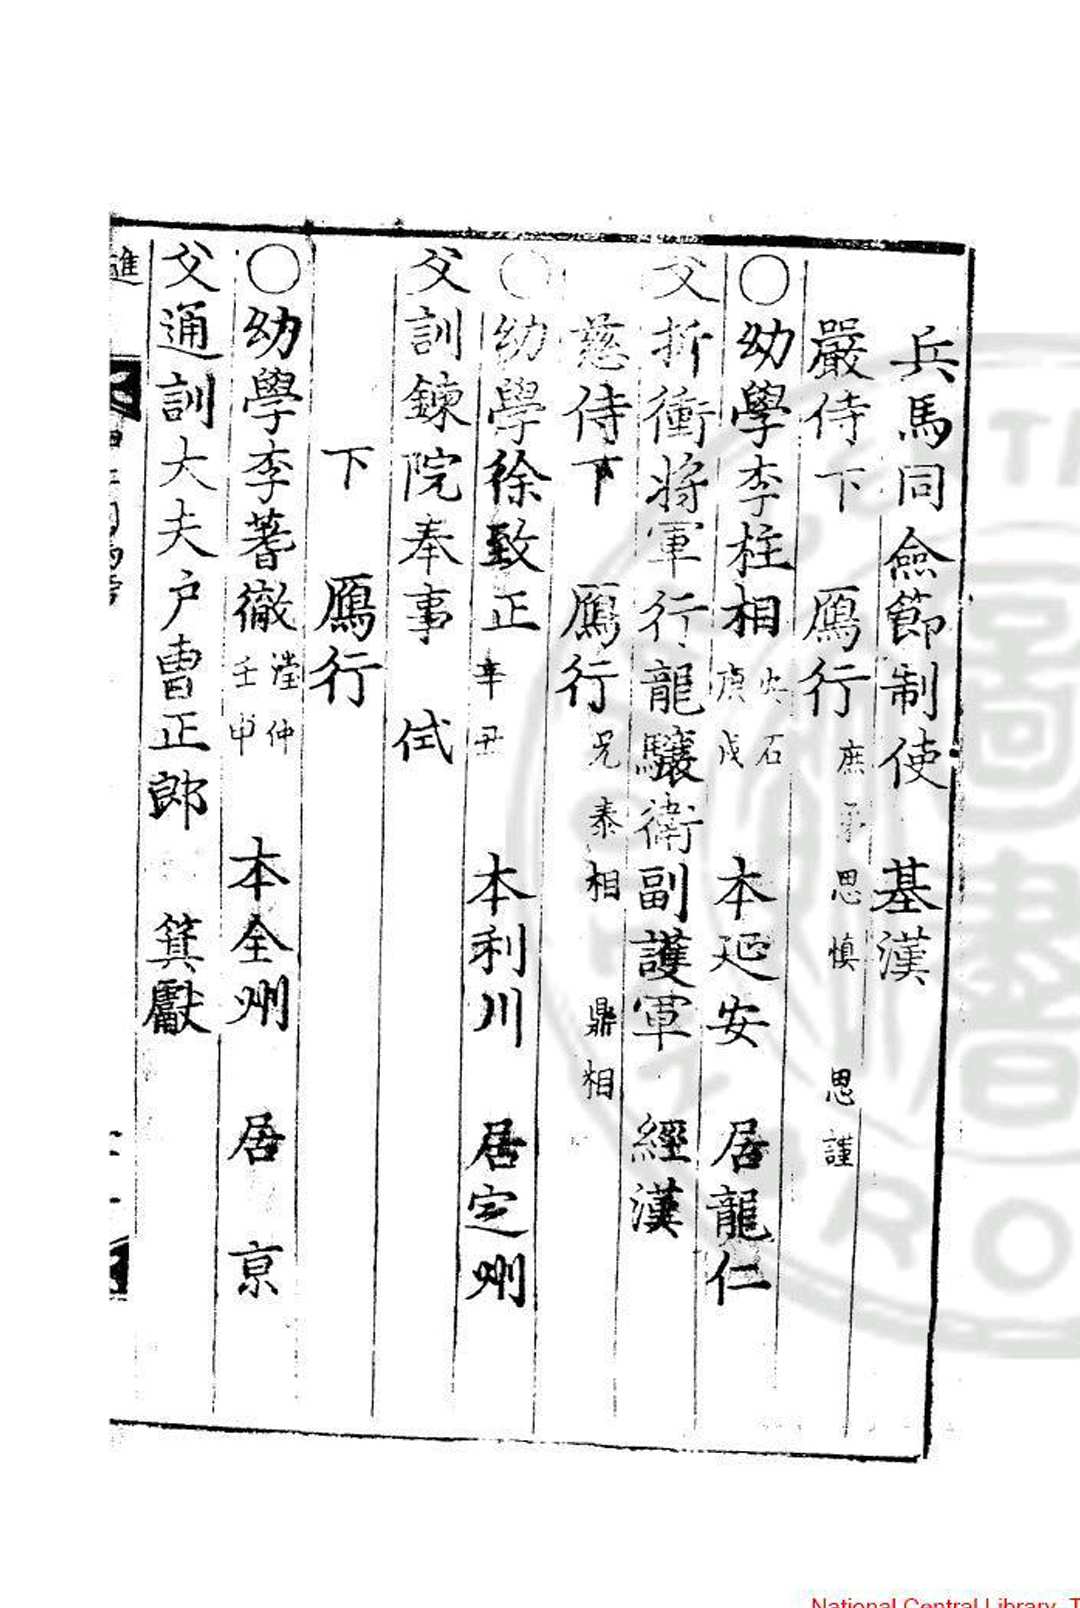 兵馬同僉節制使 基漢
嚴侍下 鴈行 庶 思慎 思謹
〇幼學李柱相 庚戌 石 本延安 居龍仁
父折衝將軍行龍驤衛副護軍 經漢
慈侍下 鴈行 兄泰相 鼎相
〇幼學徐致正 辛丑 本利川 居定州
父訓鍊院奉事 侙
下 鴈行
〇幼學李蓍徹 瀅仲 壬申 本全州 居京
父通訓大夫戶曹正郎 箕獻
進
National Central Library, T